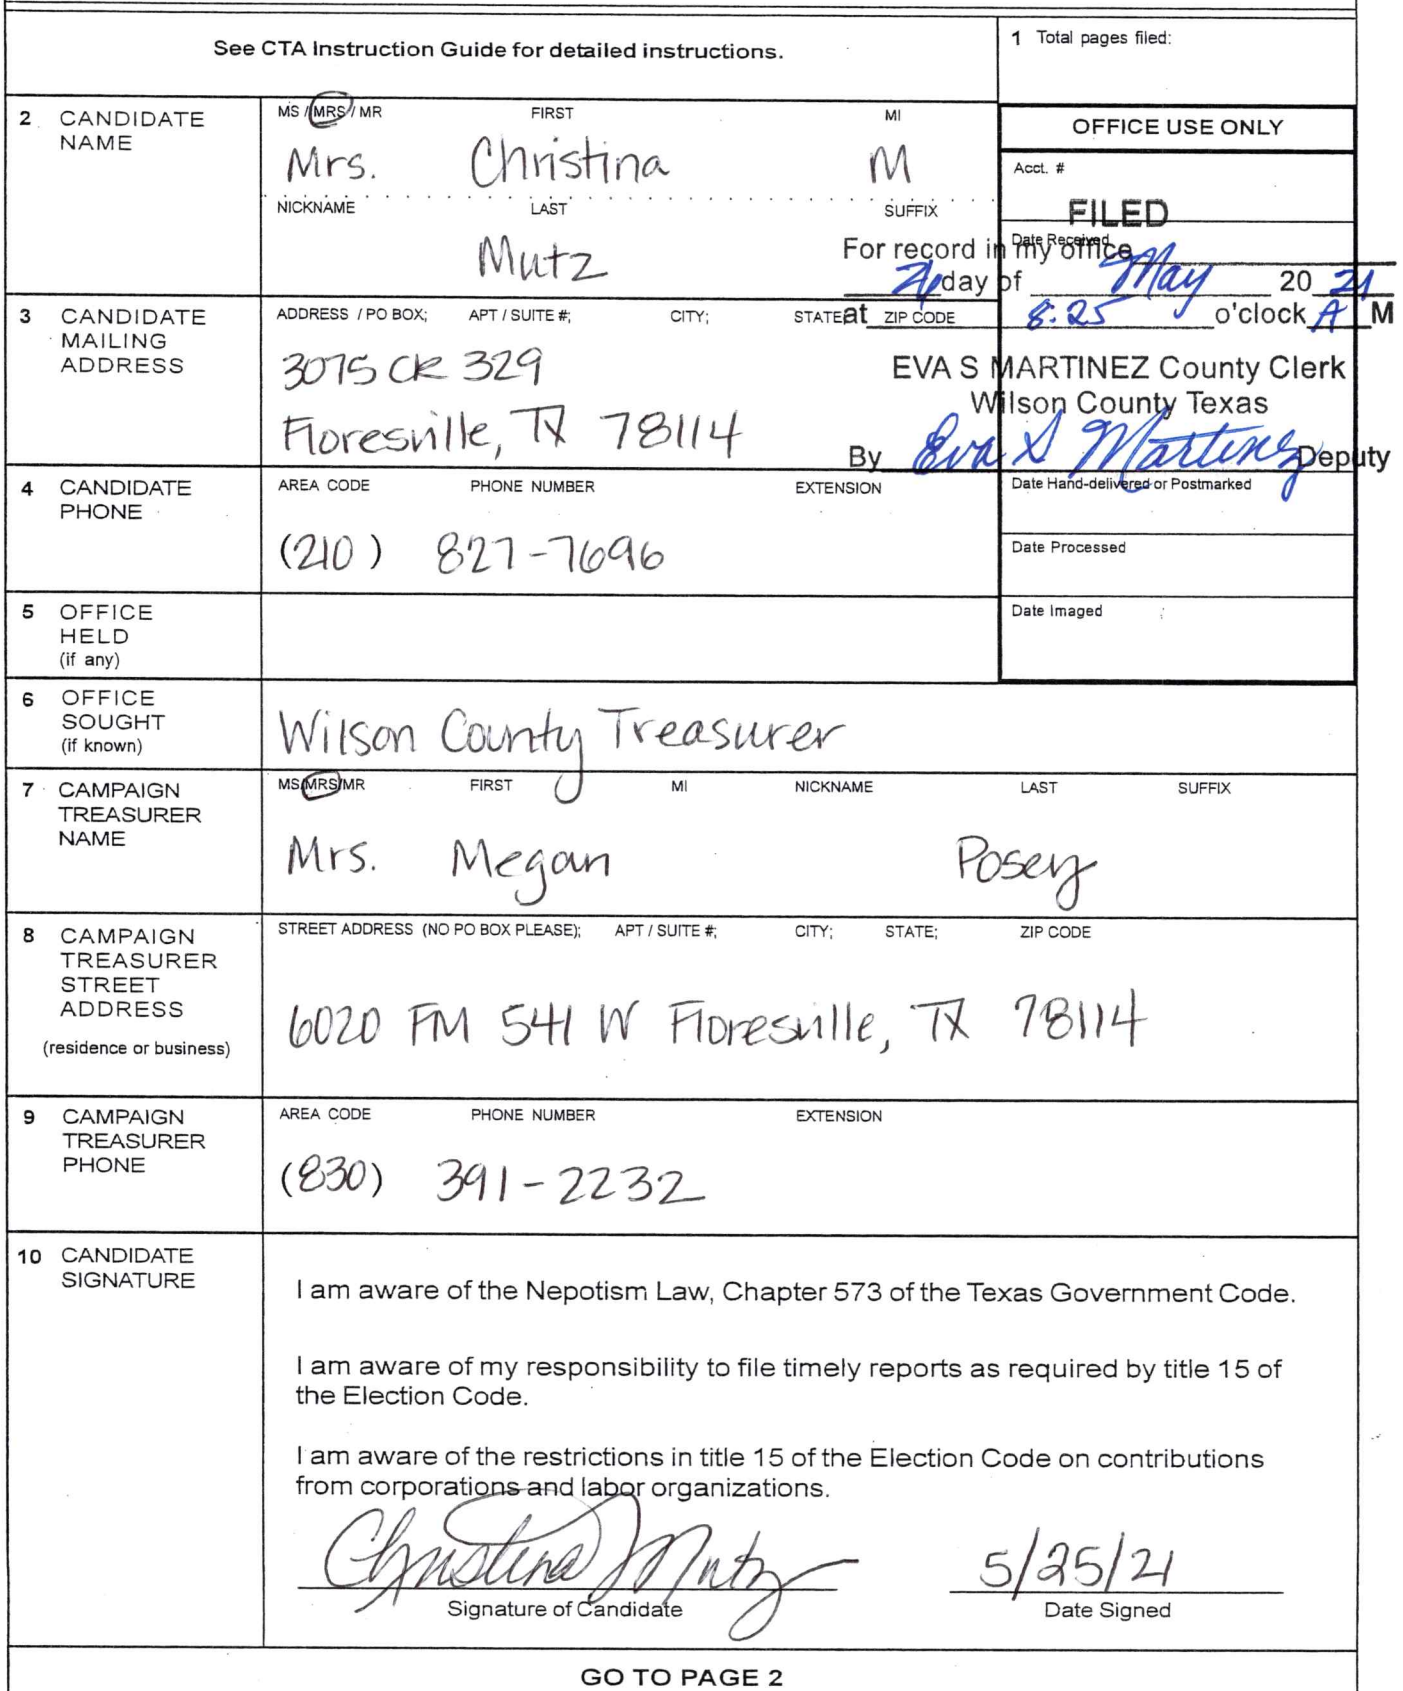 See CTA Instruction Guide for detailed instructions.
1 Total pages filed:
2 CANDIDATE NAME
MS / MRS / MR FIRST MI
Mrs. Christina M
NICKNAME LAST SUFFIX
Mutz
OFFICE USE ONLY
Acct. #
FILED
Date Received
For record in my office
26 day of May 20 21
at 8:25 o'clock A M
EVA S MARTINEZ County Clerk
Wilson County Texas
By Eva S Martinez Deputy
Date Hand-delivered or Postmarked
Date Processed
Date Imaged
3 CANDIDATE MAILING ADDRESS
ADDRESS / PO BOX; APT / SUITE #; CITY; STATE; ZIP CODE
3075 CR 329
Floresville, TX 78114
4 CANDIDATE PHONE
AREA CODE PHONE NUMBER EXTENSION
(210) 827-7696
5 OFFICE HELD (if any)
6 OFFICE SOUGHT (if known)
Wilson County Treasurer
7 CAMPAIGN TREASURER NAME
MS/MRS/MR FIRST MI NICKNAME LAST SUFFIX
Mrs. Megan Posey
8 CAMPAIGN TREASURER STREET ADDRESS (residence or business)
STREET ADDRESS (NO PO BOX PLEASE); APT / SUITE #; CITY; STATE; ZIP CODE
6020 FM 541 W Floresville, TX 78114
9 CAMPAIGN TREASURER PHONE
AREA CODE PHONE NUMBER EXTENSION
(830) 391-2232
10 CANDIDATE SIGNATURE
I am aware of the Nepotism Law, Chapter 573 of the Texas Government Code.
I am aware of my responsibility to file timely reports as required by title 15 of
the Election Code.
I am aware of the restrictions in title 15 of the Election Code on contributions
from corporations and labor organizations.
Christina Mutz 5/25/21
Signature of Candidate Date Signed
GO TO PAGE 2